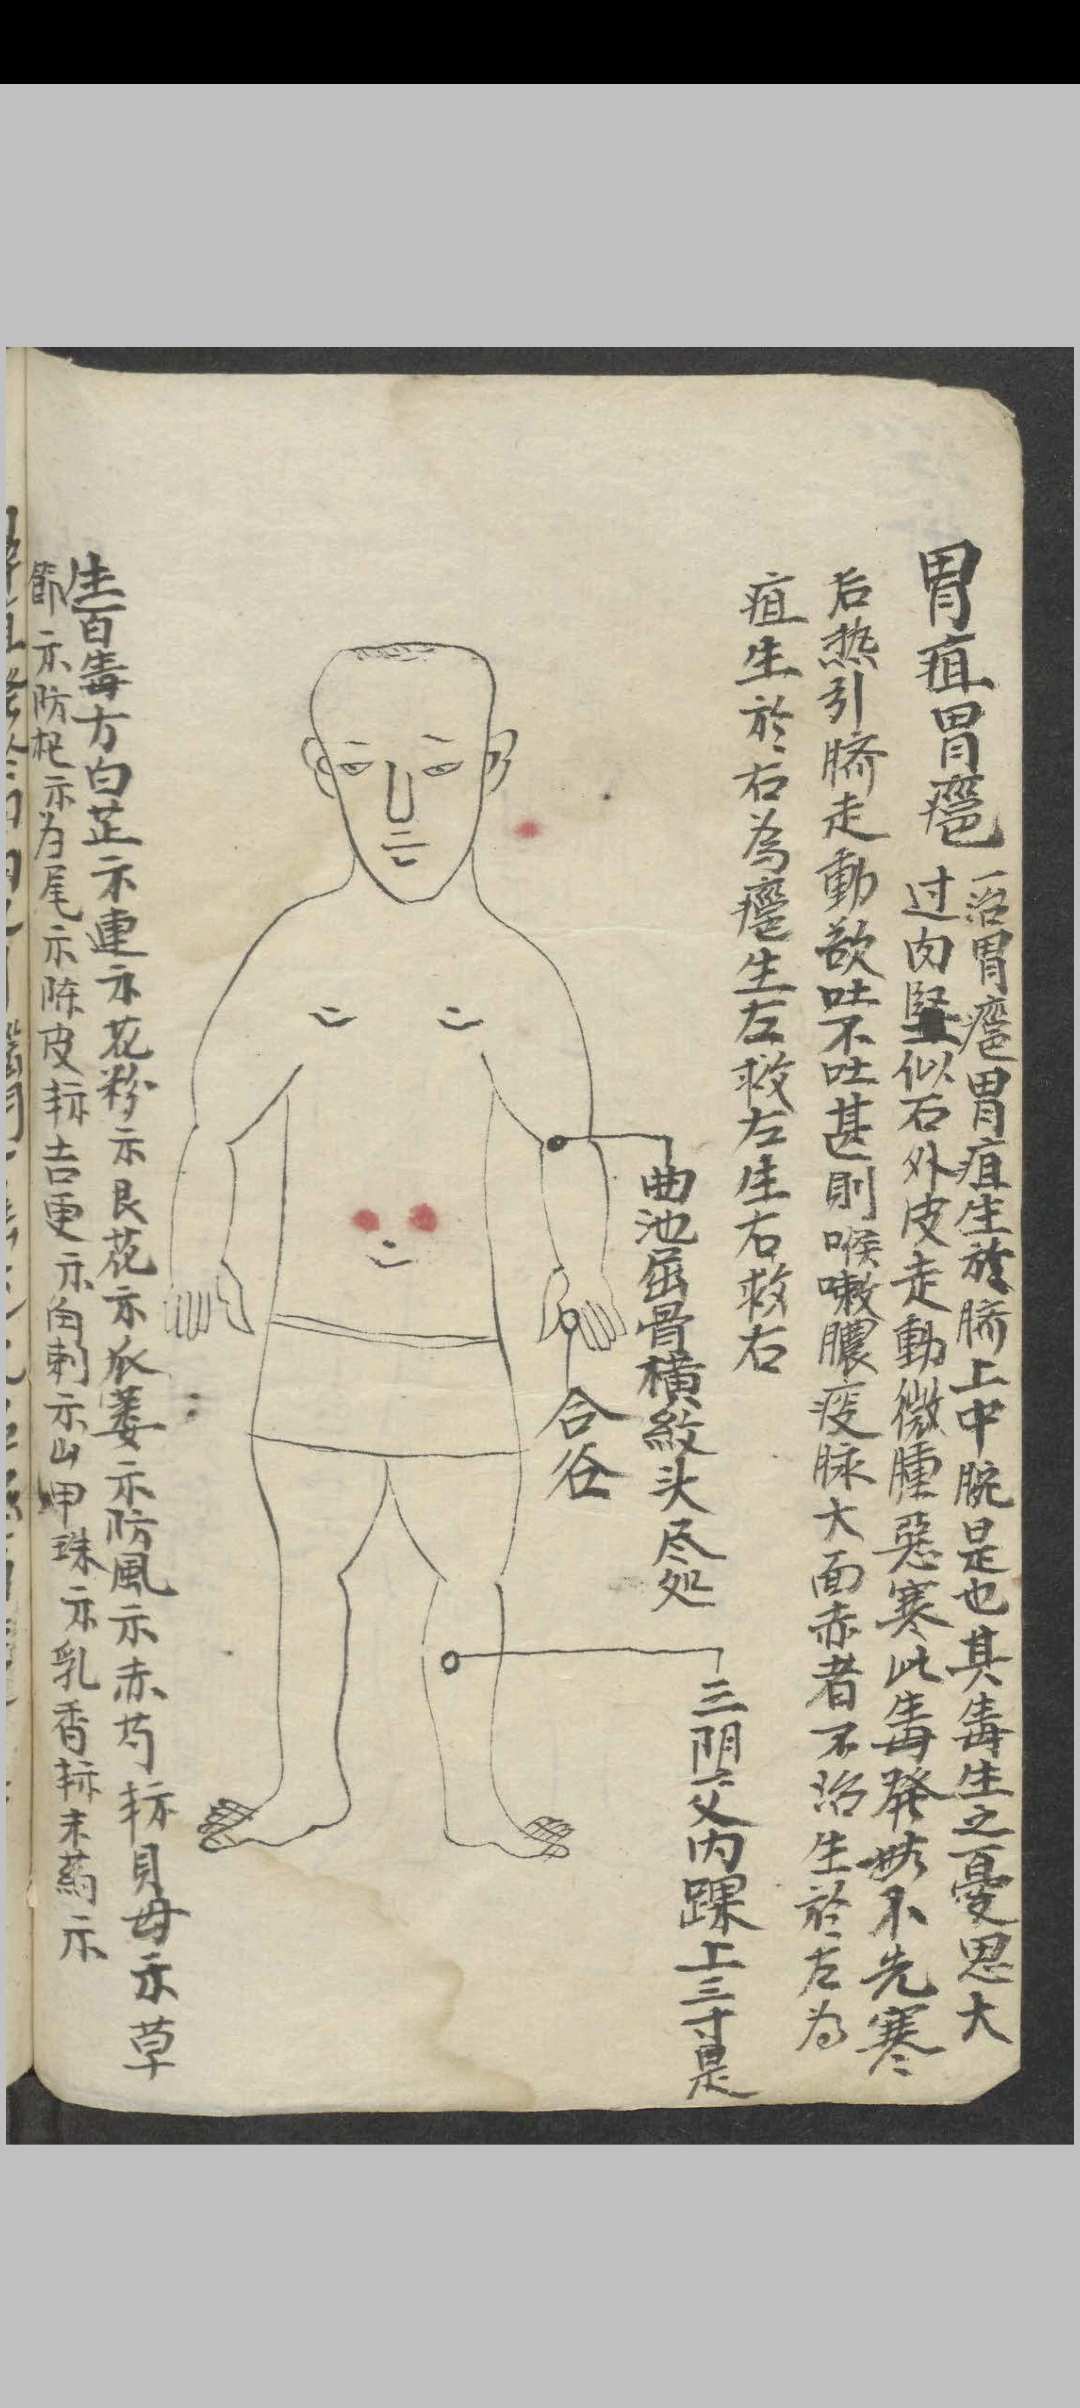 胃疽胃癰
一治胃癰胃疽生於脐上中脘是也其毒生之憂思大
过内堅似石外皮走動微腫惡寒此毒發時不先寒
后热引脐走動欲吐不吐甚則喉嗽膿痰脉大面赤者不治生於左为
疽生於右為癰生左救左生右救右
曲池屈骨橫紋头尽处
合谷
三阴交内踝上三寸是
生百毒方白芷示連示花粉示艮花示瓜蔞示防風示赤芍貝母示草
節示防杞示归尾示陈皮吉更示白刺示山甲珠示乳香末药示